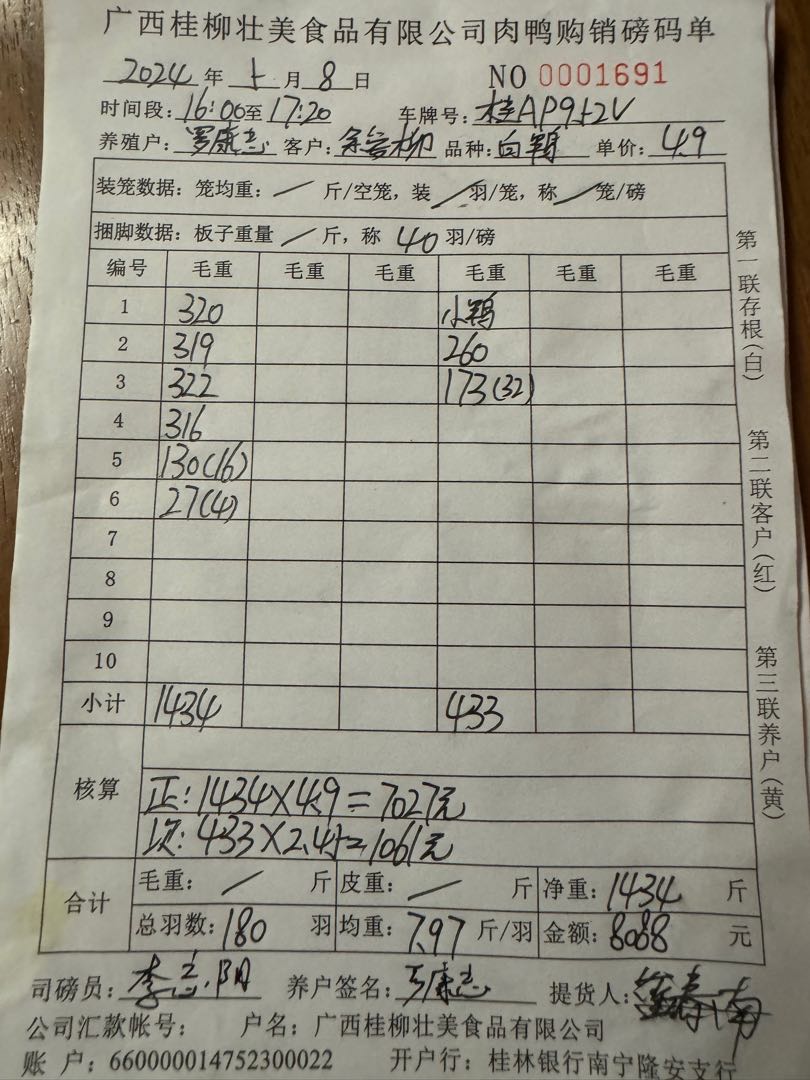 广西桂柳壮美食品有限公司肉鸭购销磅码单
2024 年 5 月 8 日 NO 0001691
时间段: 16:00至17:20 车牌号: 桂AP952V
养殖户: 罗康志 客户: 柳 品种: 白鸭 单价: 4.9
装笼数据: 笼均重: / 斤/空笼, 装 / 羽/笼, 称 / 笼/磅
捆脚数据: 板子重量 / 斤, 称 40 羽/磅
编号 毛重 毛重 毛重 毛重 毛重 毛重
1 320 小鸭
2 319 260
3 322 173(32)
4 316
5 130(16)
6 27(4)
7
8
9
10
小计 1434 433
核算
正: 1434×4.9=7027元
次: 433×2.45=1061元
合计
毛重: / 斤 皮重: / 斤 净重: 1434 斤
总羽数: 180 羽 均重: 7.97 斤/羽 金额: 8088 元
司磅员: 李志阳 养户签名: 罗康志 提货人: 南
公司汇款帐号: 户名: 广西桂柳壮美食品有限公司
账 户: 660000014752300022 开户行: 桂林银行南宁隆安支行
第一联存根(白)
第二联客户(红)
第三联养户(黄)